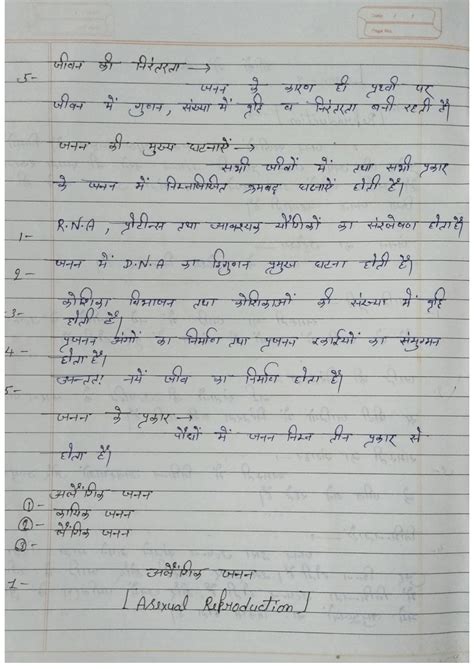 जीवन की निरंतरता →
5- जनन के कारण ही पृथ्वी पर
जीवन में गुणन, संख्या में वृद्धि व निरंतरता बनी रहती है।
जनन की मुख्य घटनाऐं →
सभी जीवों में तथा सभी प्रकार
के जनन में निम्नलिखित क्रमबद्ध घटनाऐं होती हैं।
1- R.N.A, प्रोटीन्स तथा आवश्यक यौगिकों का संश्लेषण होता है।
2- जनन में D.N.A का द्विगुणन प्रमुख घटना होती है।
3- कोशिका विभाजन तथा कोशिकाओं की संख्या में वृद्धि
होती है।
4- प्रजनन अंगों का निर्माण तथा प्रजनन इकाईयों का संयुग्मन
होता है।
5- अन्ततः नये जीव का निर्माण होता है।
जनन के प्रकार →
पौधों में जनन निम्न तीन प्रकार से
होता है।
① - अलैंगिक जनन
② - कायिक जनन
③ - लैंगिक जनन
1- अलैंगिक जनन
[Asexual Reproduction]